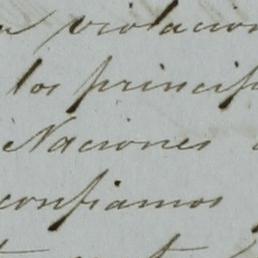 violacion
los princip
Naciones
confiamos